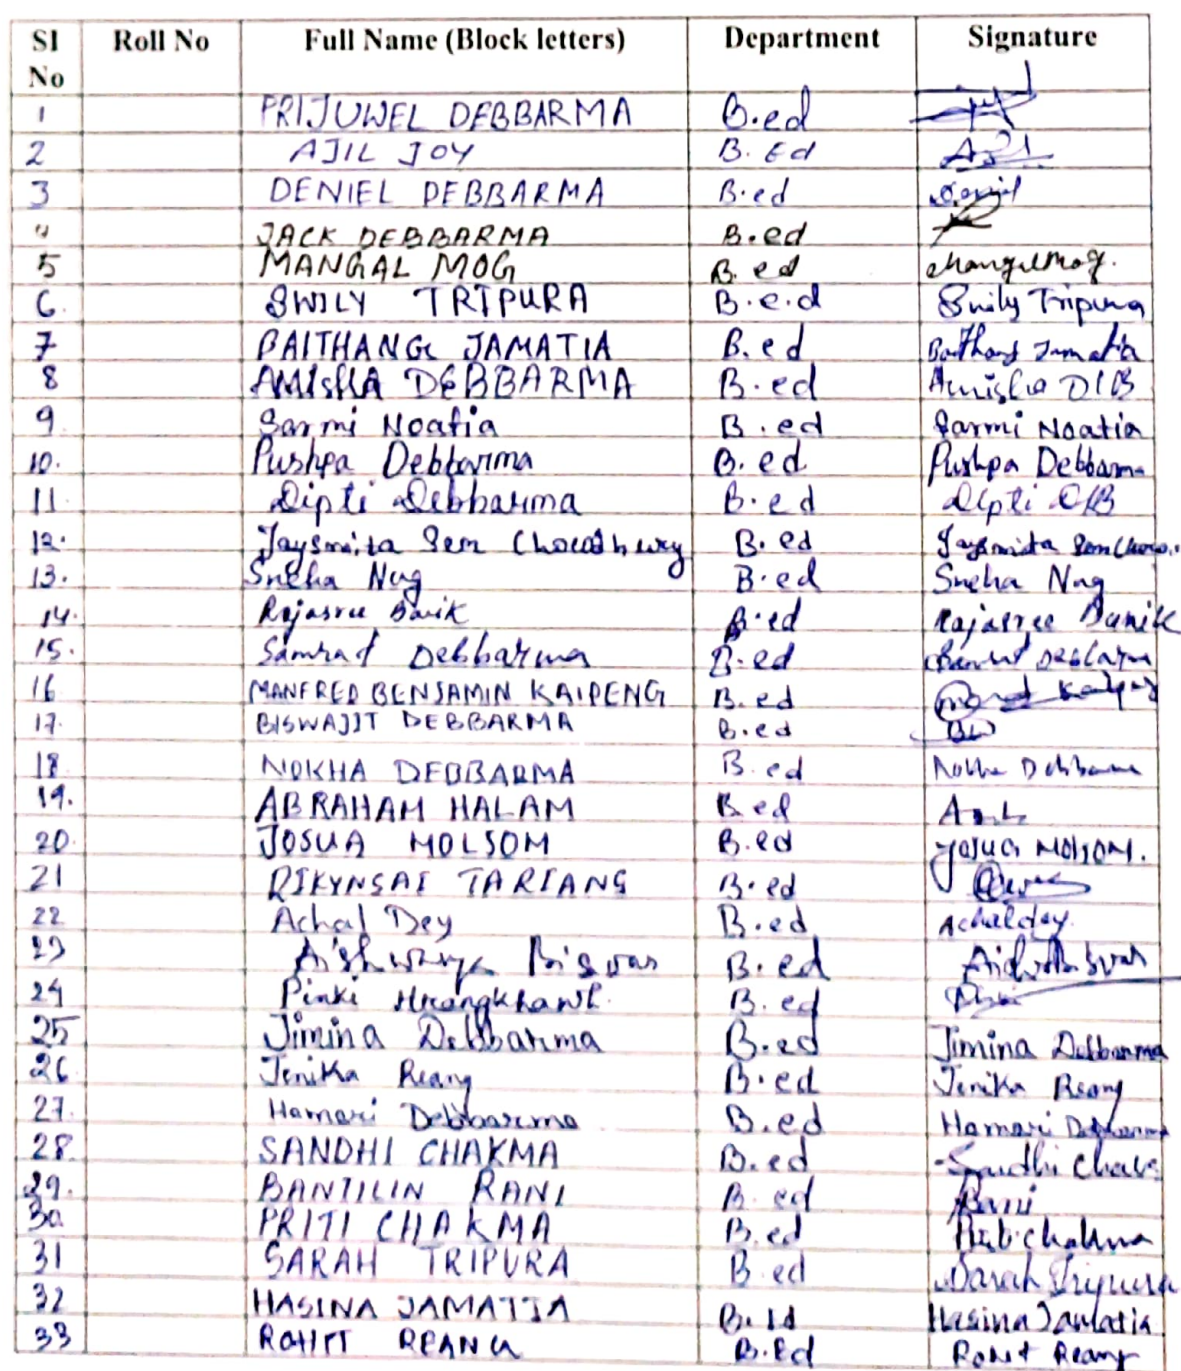 Sl No Roll No Full Name (Block letters) Department Signature
1 PRIJUWEL DEBBARMA B.ed
2 AJIL JOY B. Ed
3 DENIEL DEBBARMA B.ed Deniel
4 JACK DEBBARMA B.ed
5 MANGAL MOG B. ed Mangal Mog.
6. SWILY TRIPURA B.e.d Swily Tripura
7 BAITHANG JAMATIA B.ed Baithang Jamatia
8 AMISHA DEBBARMA B.ed Amisha D/B
9. Sarmi Noatia B.ed Sarmi Noatia
10. Pushpa Debbarma B.ed. Pushpa Debbarma
11. Dipti Debbarma B.ed Dipti D/B
12. Jaysmita Sen Choudhury B.ed Jaysmita Sen
13. Sneha Nag B.ed Sneha Nag
14. Rajasree Banik B.ed Rajasree Banik
15. Samrat Debbarma B.ed Debbarma
16 MANFRED BENJAMIN KAIPENG B.ed Kaipeng
17. BISWAJIT DEBBARMA B.ed
18. NOKHA DEBBARMA B.ed Nokha Debbarma
19. ABRAHAM HALAM B.ed
20. JOSUA MOLSOM B.ed Josua MOLSOM.
21 RIKYNSAI TARIANG B.ed
22 Achal Dey B.ed Achal dey.
23 Aishwarya Biswas B.ed
24 Pinki Hrangkhawl. B.ed
25 Jimina Debbarma B.ed Jimina Debbarma
26 Jenika Reang B.ed Jenika Reang
27. Hamari Debbarma B.ed Hamari Debbarma
28. SANDHI CHAKMA B.ed Sandhi
29. BANTILIN RANI B.ed Rani
30 PRITI CHAKMA B.ed Priti chakma
31 SARAH TRIPURA B.ed Sarah Tripura
32 HASINA JAMATIA B.Ed Hasina Jamatia
33 ROHIT REANG B.Ed Rohit Reang